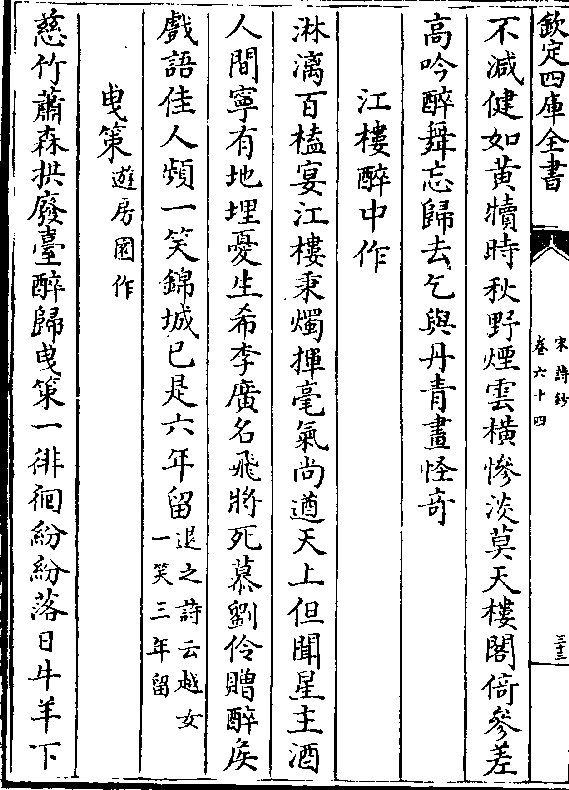 欽定四庫全書
宋詩鈔
卷六十四
三十三
不減健如黄犢時秋野煙雲橫慘淡莫天樓閣倚參差
高吟醉舞忘歸去乞與丹青畫怪奇
江樓醉中作
淋漓百榼宴江樓秉燭揮毫氣尚遒天上但聞星主酒
人間寧有地埋憂生希李廣名飛將死慕劉伶贈醉侯
戲語佳人頻一笑錦城已是六年留退之詩云越女
一笑三年留
曳策遊房園作
慈竹蕭森拱廢臺醉歸曳策一徘徊紛紛落日牛羊下